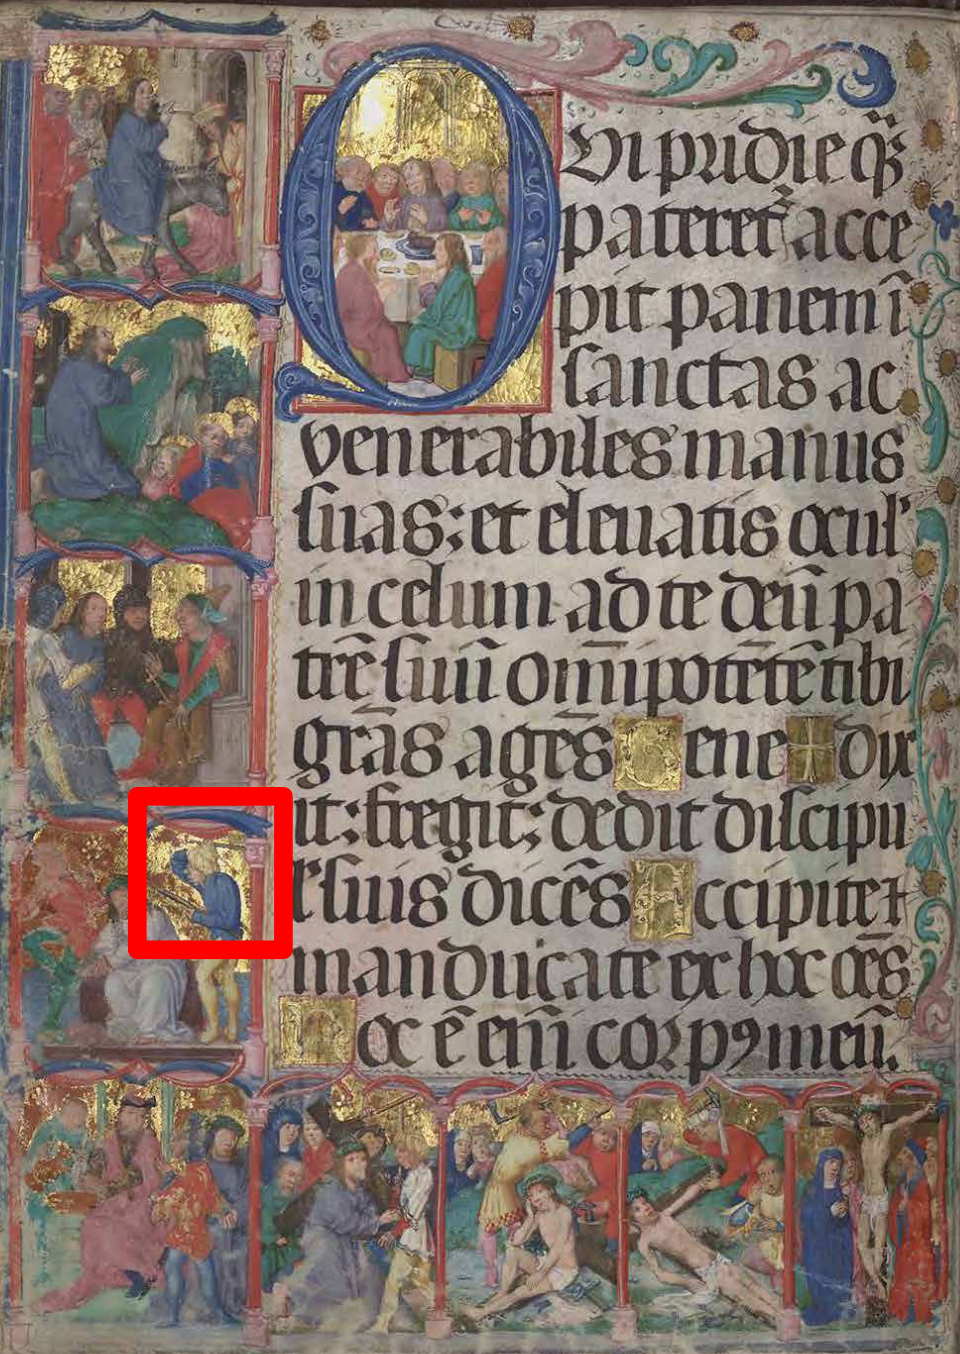 QVi pridie q̃
pateret᷑ acce
pit panem ĩ
sanctas ac
venerabiles manus
suas; et eleuatis ocul'
in celum ad te deũ pa
trẽ suũ om̃ipotẽtẽ tibi
gr̃as agẽs Bene ✝ dix
it; fregit; dedit discipu
l' suis dicẽs Accipite ⁊
manducate ex hoc oẽs
Hoc ẽ eñi corpꝰ meũ.